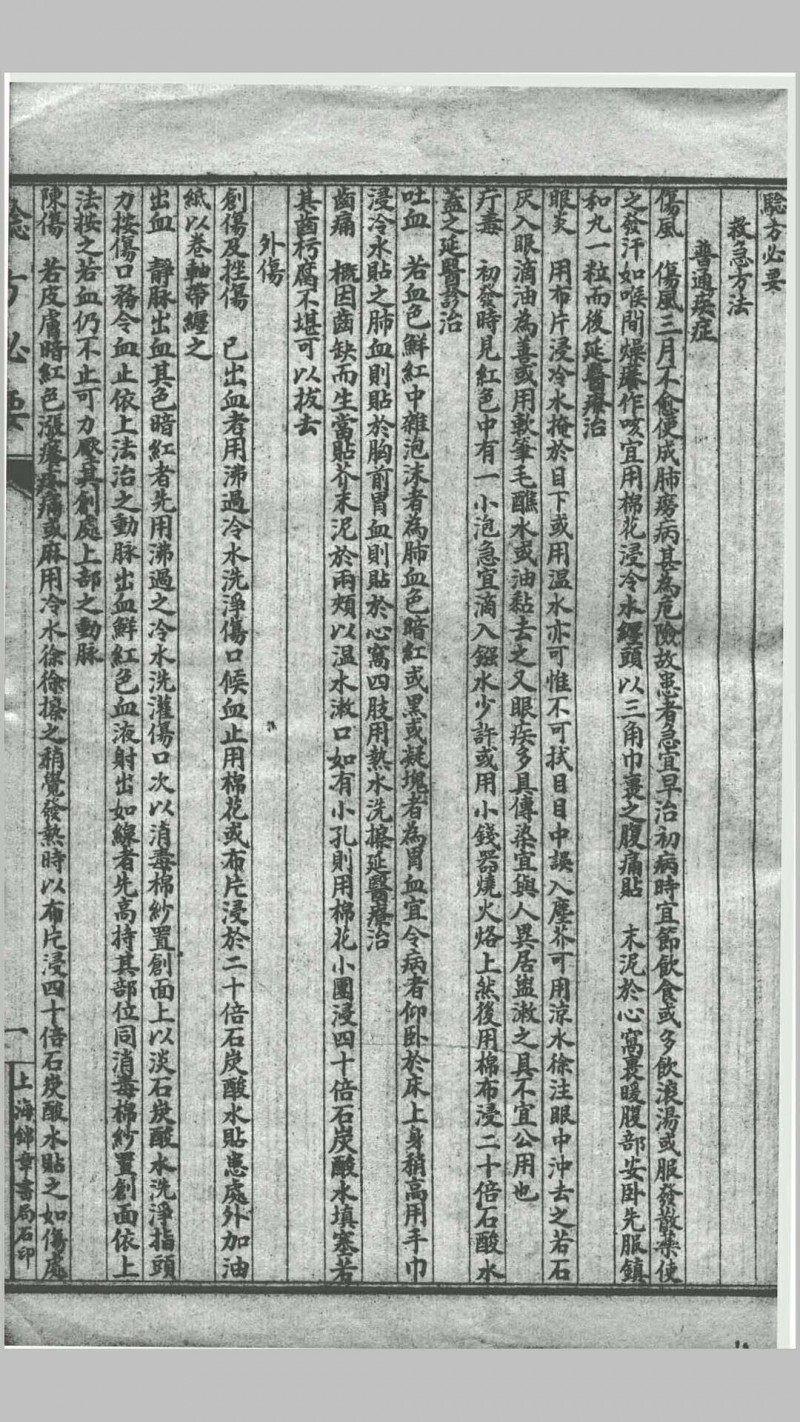 驗方必要
救急方法
普通疾症
傷風　傷風三月不愈便成肺癆病甚為危險故患者急宜早治初病時宜節飲食或多飲滾湯或服發散藥使
之發汗如喉間燥癢作咳宜用棉花浸冷水纏頭以三角巾裹之腹痛貼　末泥於心窩裹暖腹部安卧先服鎮
和丸一粒而後延醫療治
眼炎　用布片浸冷水掩於目下或用温水亦可惟不可拭目目中誤入塵芥可用涼水徐注眼中沖去之若石
灰入眼滴油為善或用軟筆毛醮水或油黏去之又眼疾多具傳染宜與人異居盥漱之具不宜公用也
疔毒　初發時見紅色中有一小泡急宜滴入鏹水少許或用小錢器燒火烙上然後用棉布浸二十倍石酸水
蓋之延醫診治
吐血　若血色鮮紅中雜泡沫者為肺血色暗紅或黑或凝塊者為胃血宜令病者仰卧於床上身稍高用手巾
浸冷水貼之肺血則貼於胸前胃血則貼於心窩四肢用熱水洗擦延醫療治
齒痛　概因齒缺而生當貼芥末泥於兩頰以温水漱口如有小孔則用棉花小團浸四十倍石炭酸水填塞若
其齒朽腐不堪可以拔去
外傷
創傷及挫傷　已出血者用沸過冷水洗淨傷口候血止用棉花或布片浸於二十倍石炭酸水貼患處外加油
紙以卷軸帶纏之
出血　靜脉出血其色暗紅者先用沸過之冷水洗灌傷口次以消毒棉紗置創面上以淡石炭酸水洗淨指頭
力按傷口務令血止依上法治之動脉出血鮮紅色血液射出如線者先高持其部位同消毒棉紗置創面依上
法按之若血仍不止可力壓其創處上部之動脉
陳傷　若皮膚暗紅色漲癢疼痛或麻用冷水徐徐擦之稍覺發熱時以布片浸四十倍石炭酸水貼之如傷處
驗方必要
一
上海錦章書局石印